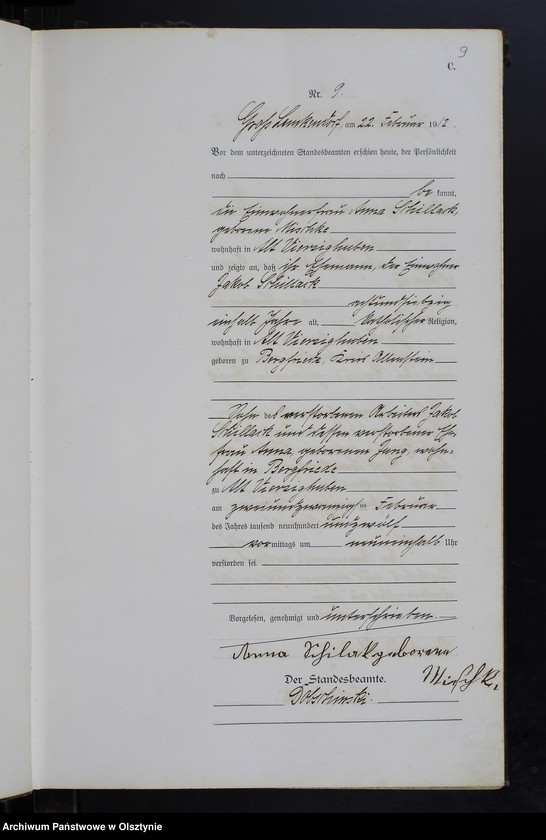 9
C.
Nr. 9.
Groß Lemkendorf, am 22. Februar 1912.
Vor dem unterzeichneten Standesbeamten erschien heute, der Persönlichkeit
nach
be kannt,
die Einwohnerfrau Anna Schillack,
geborene Mischke
wohnhaft in Alt Vierzighuben
und zeigte an, daß ihr Ehemann, der Einwohner
Jakob Schillack
achtundsiebzig
einhalb Jahre alt, katholischer Religion,
wohnhaft in Alt Vierzighuben
geboren zu Bergfriede, Kreis Allenstein
Sohn des verstorbenen Arbeiters Jakob
Schillack und dessen verstorbener Ehe-
frau Anna, geborenen Jung, wohn-
haft in Bergfriede
zu Alt Vierzighuben
am zweiundzwanzigsten Februar
des Jahres tausend neunhundert undzwölf
vor mittags um neuneinhalb Uhr
verstorben sei.
Vorgelesen, genehmigt und unterschrieben.
Anna Schilak geborene
Mischk.
Der Standesbeamte.
Archiwum Państwowe w Olsztynie